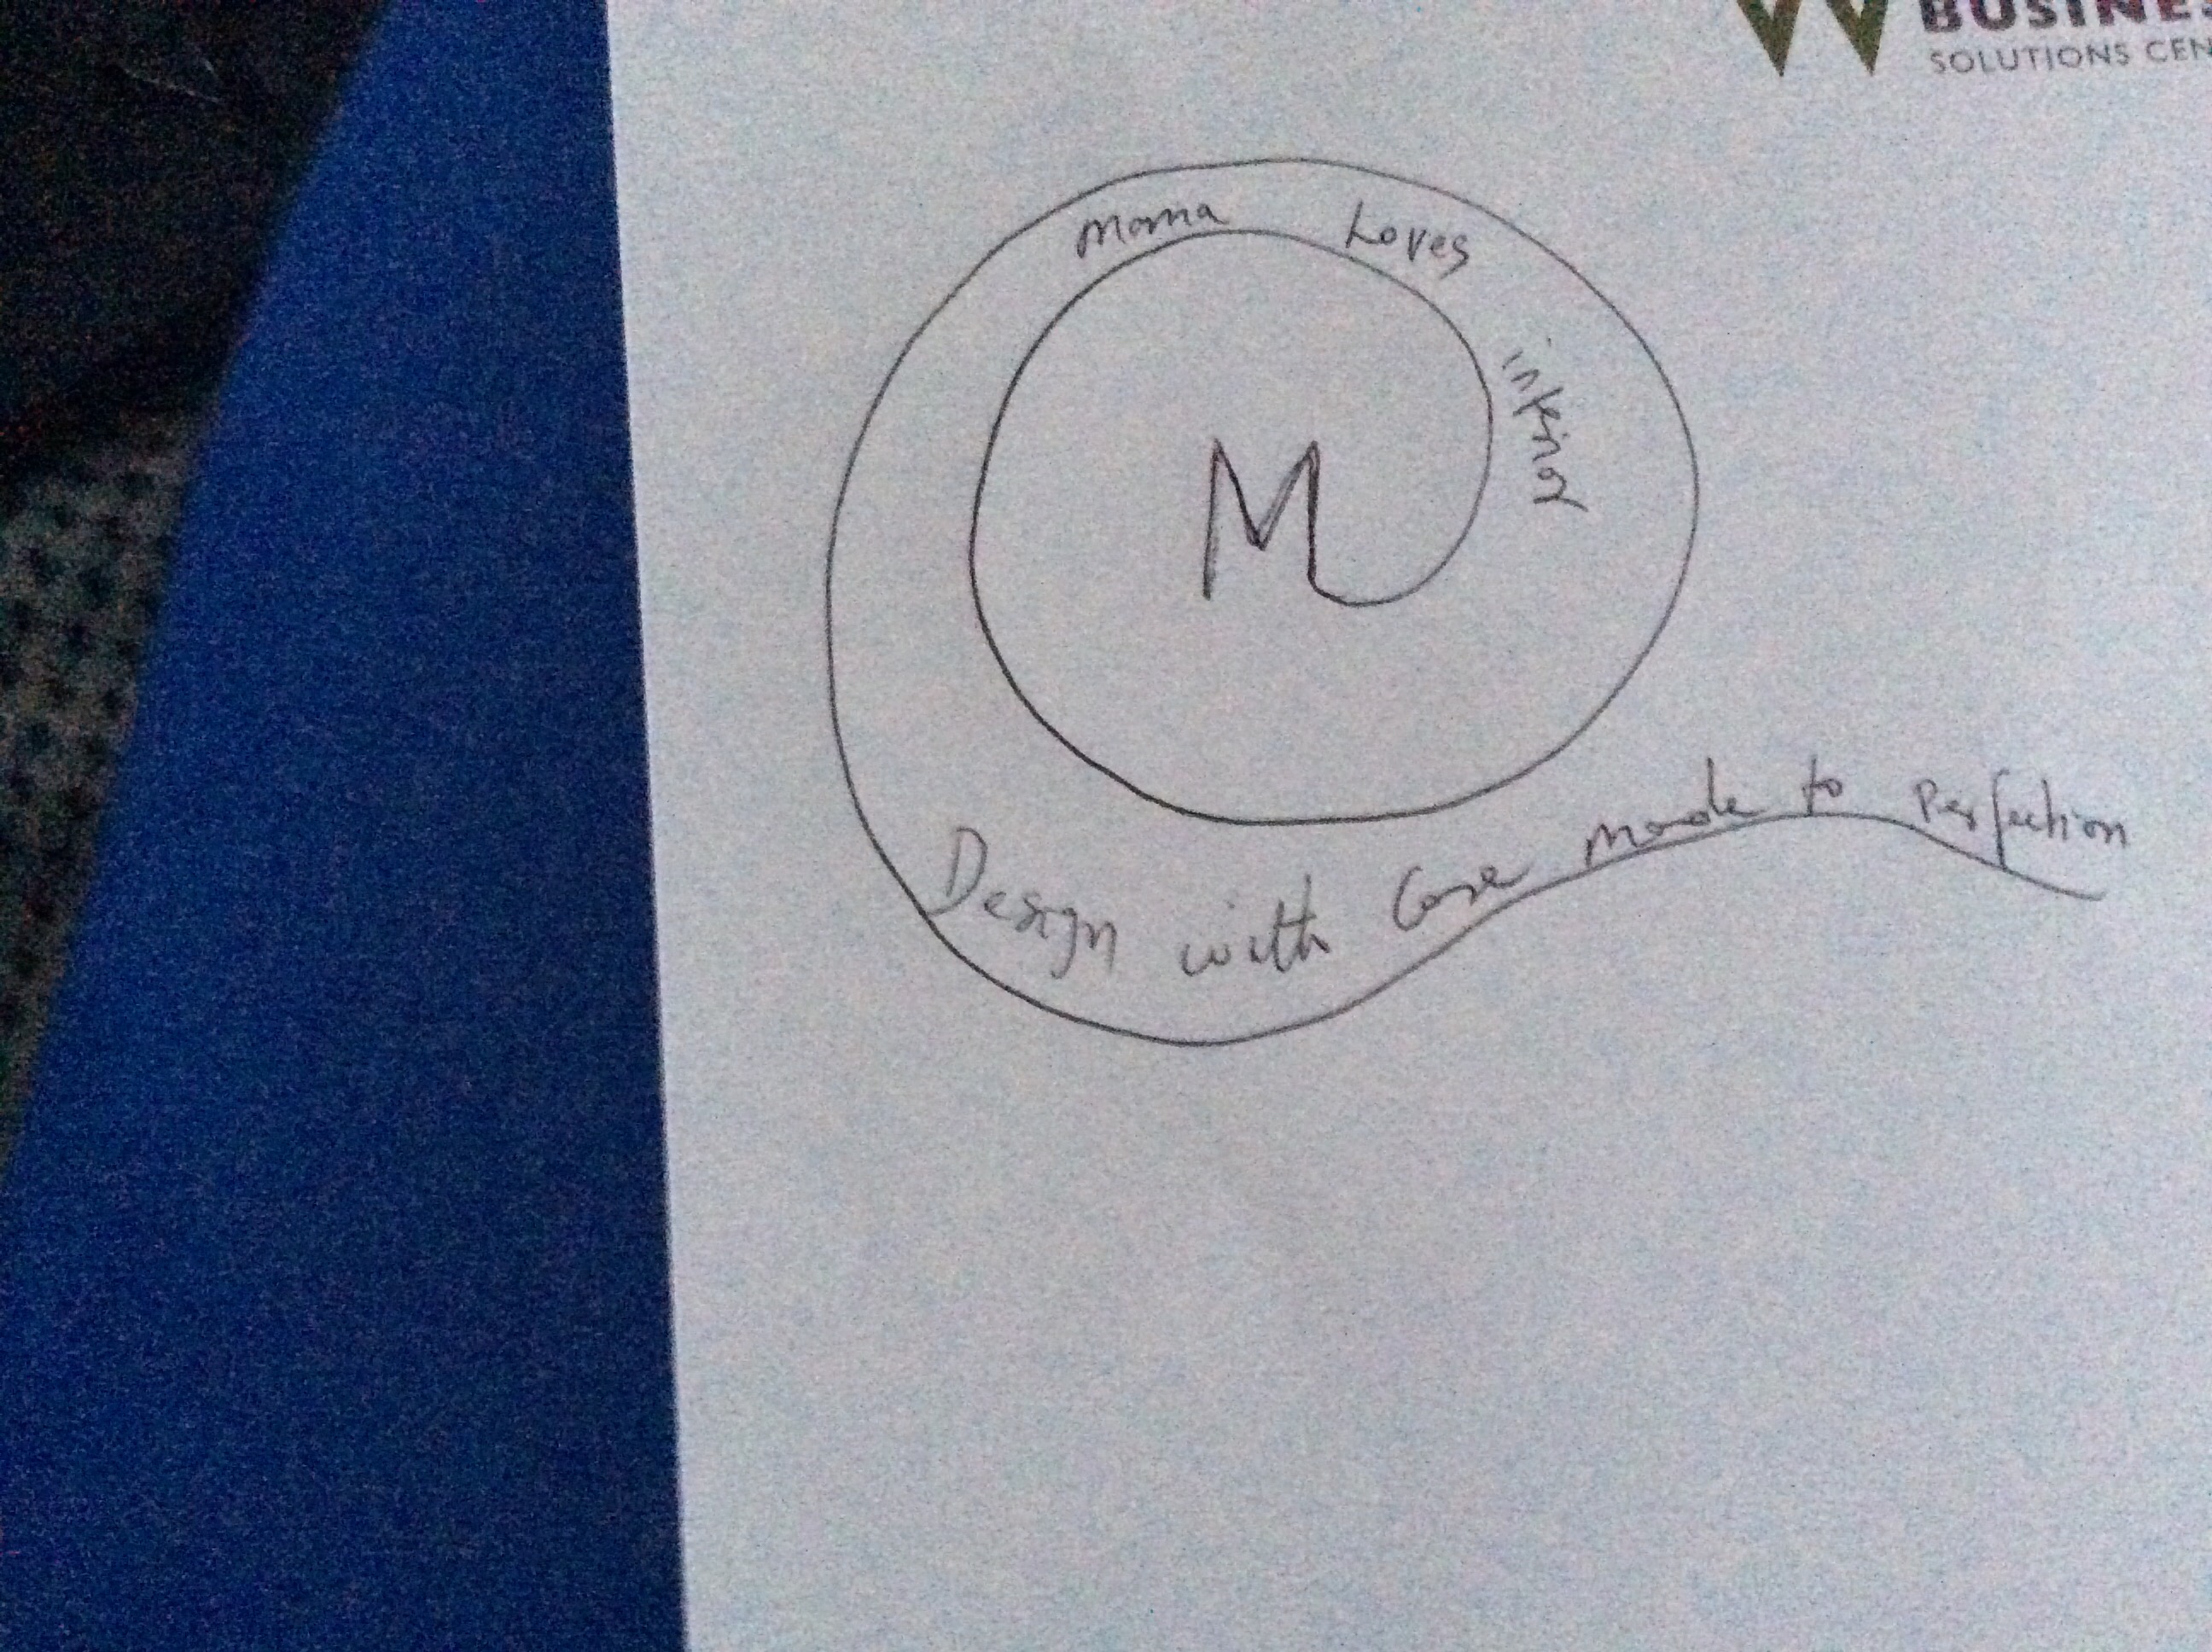 BUSINES
SOLUTIONS CEN
Mama Loves
M
Design with Care Made to Perfection